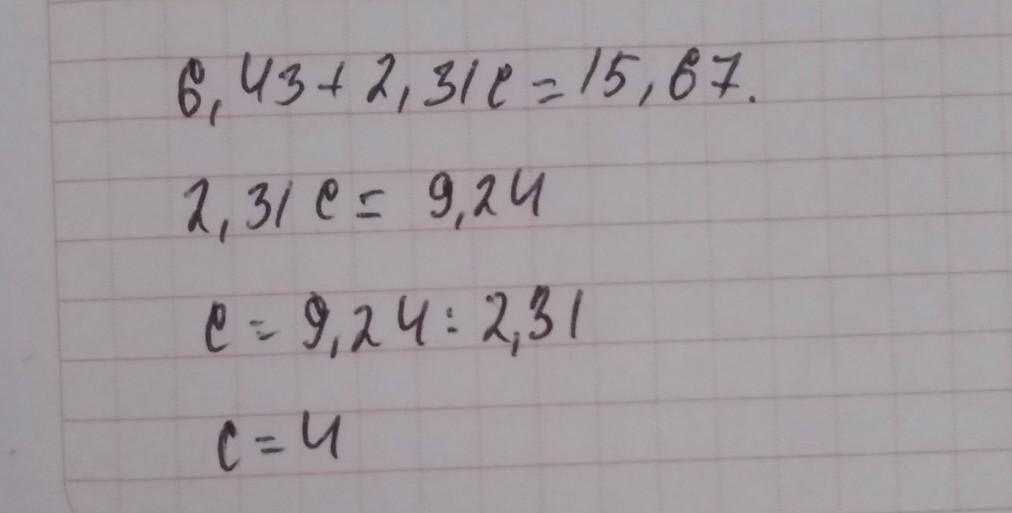 6,43+2,31c=15,67.
2,31c=9,24
c=9,24:2,31
c=4